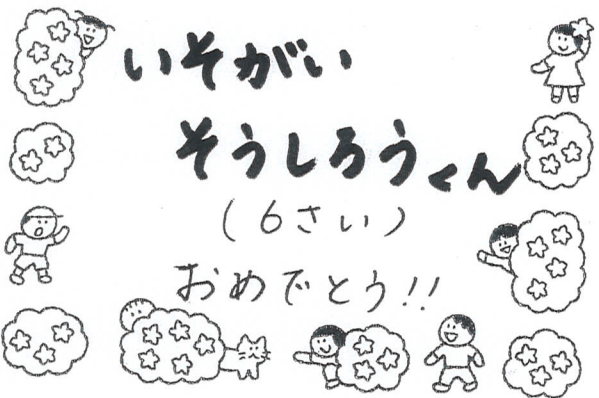 いそがい
そうしろうくん
(6さい)
おめでとう!!